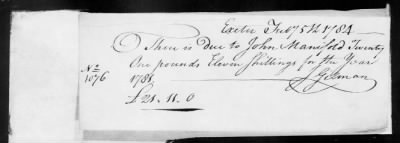 Exeter Feby 5th 1784
There is due to John Manifold Twenty
One pounds Eleven Shillings for the Year
No 1076
178
J Gilman
£21.11.0